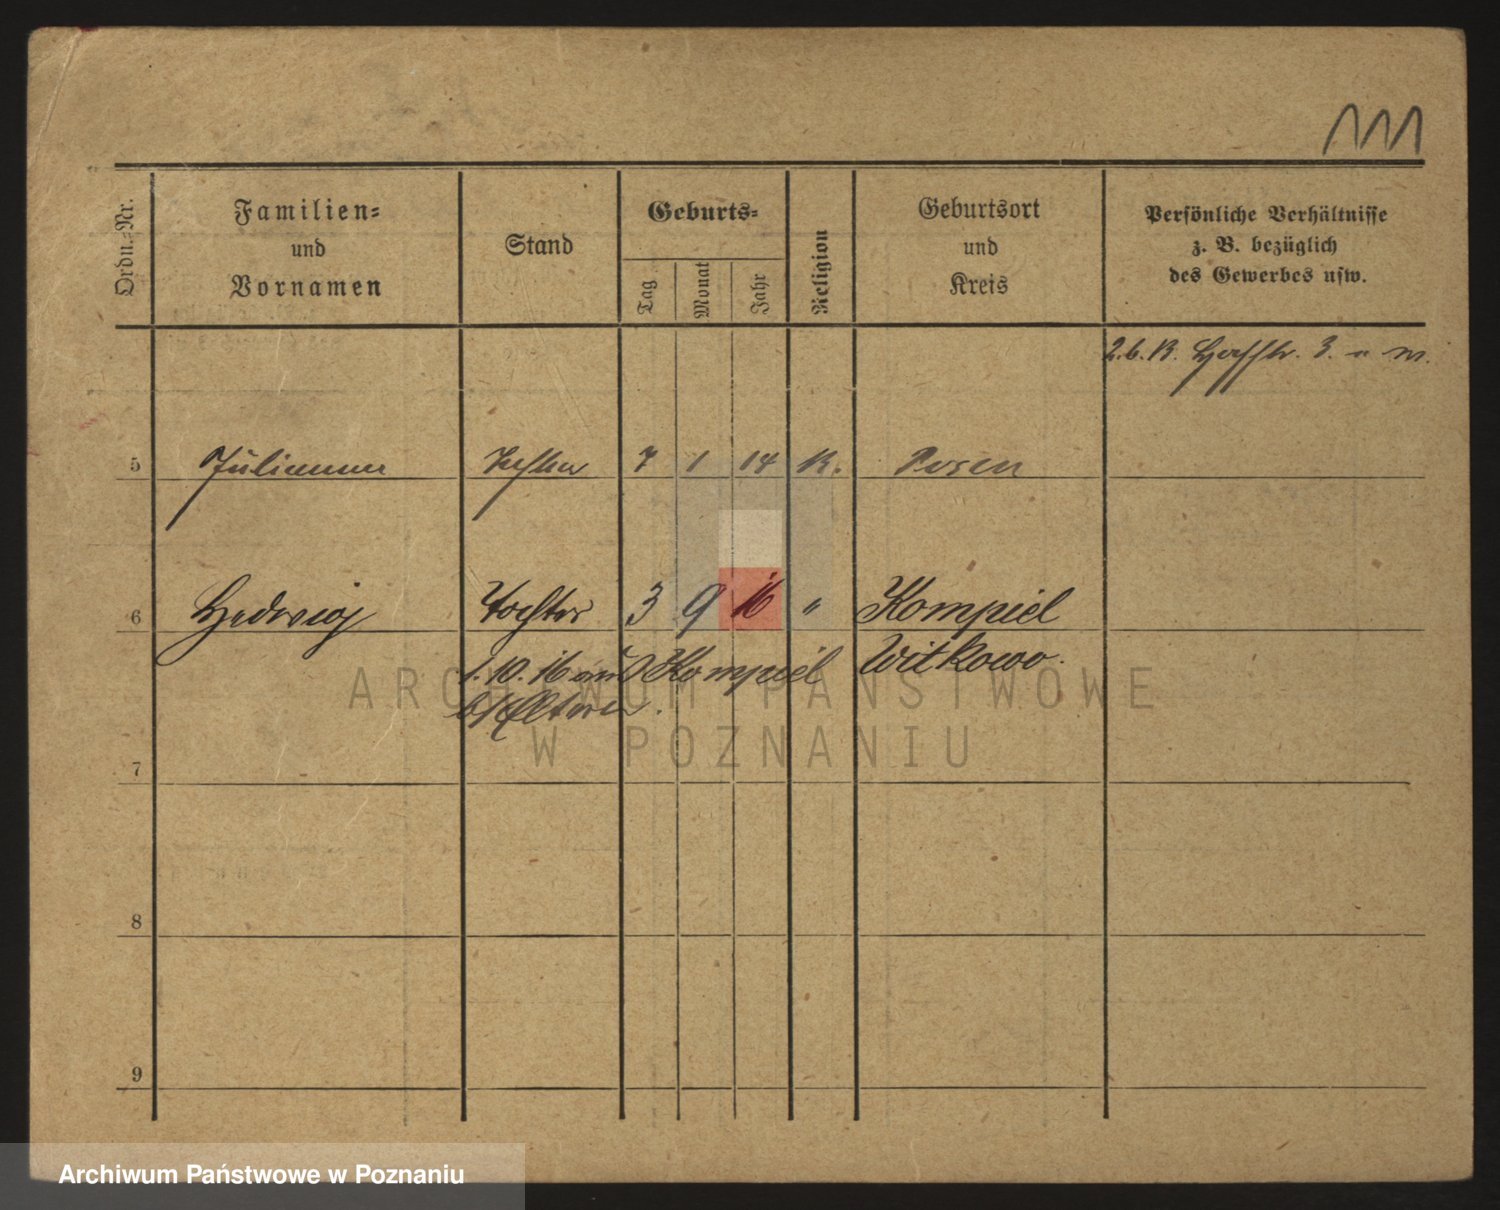 Ordn.=Nr.
Familien=
und
Vornamen
Stand
Geburts=
Tag
Monat
Jahr
Religion
Geburtsort
und
Kreis
Persönliche Verhältnisse
z. B. bezüglich
des Gewerbes usw.
3. u m.
5 Julianna Tochter 7 1 14 K. Posen
6 Hedwig Tochter 3 9 16 " Kompiel
Witkowo.
1.10.16 aus Kompiel
b/Eltern.
7
8
9
ARCHIWUM PAŃSTWOWE
W POZNANIU
Archiwum Państwowe w Poznaniu